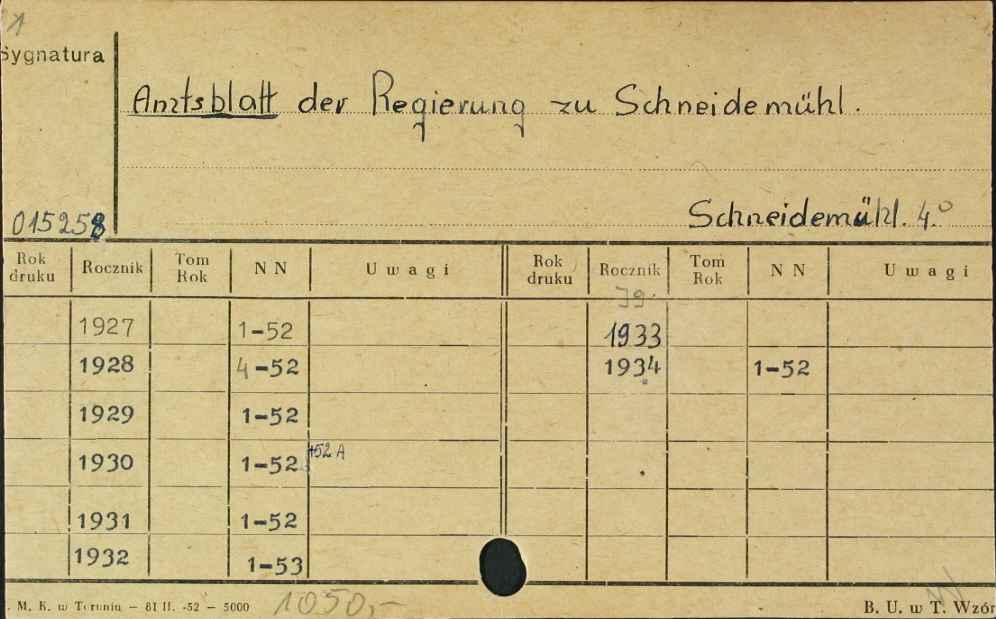 1
Sygnatura
Amtsblatt der Regierung zu Schneidemühl.
Schneidemühl. 4.º
015258
Rok druku Rocznik Tom Rok N N Uwagi Rok druku Rocznik Tom Rok N N Uwagi
Jg.
1927 1-52 1933
1928 4-52 1934 1-52
1929 1-52
1930 1-52 +52 A
1931 1-52
1932 1-53
. M. K. w Toruniu — 81 II. -52 — 5000 1050,- B. U. w T. Wzór